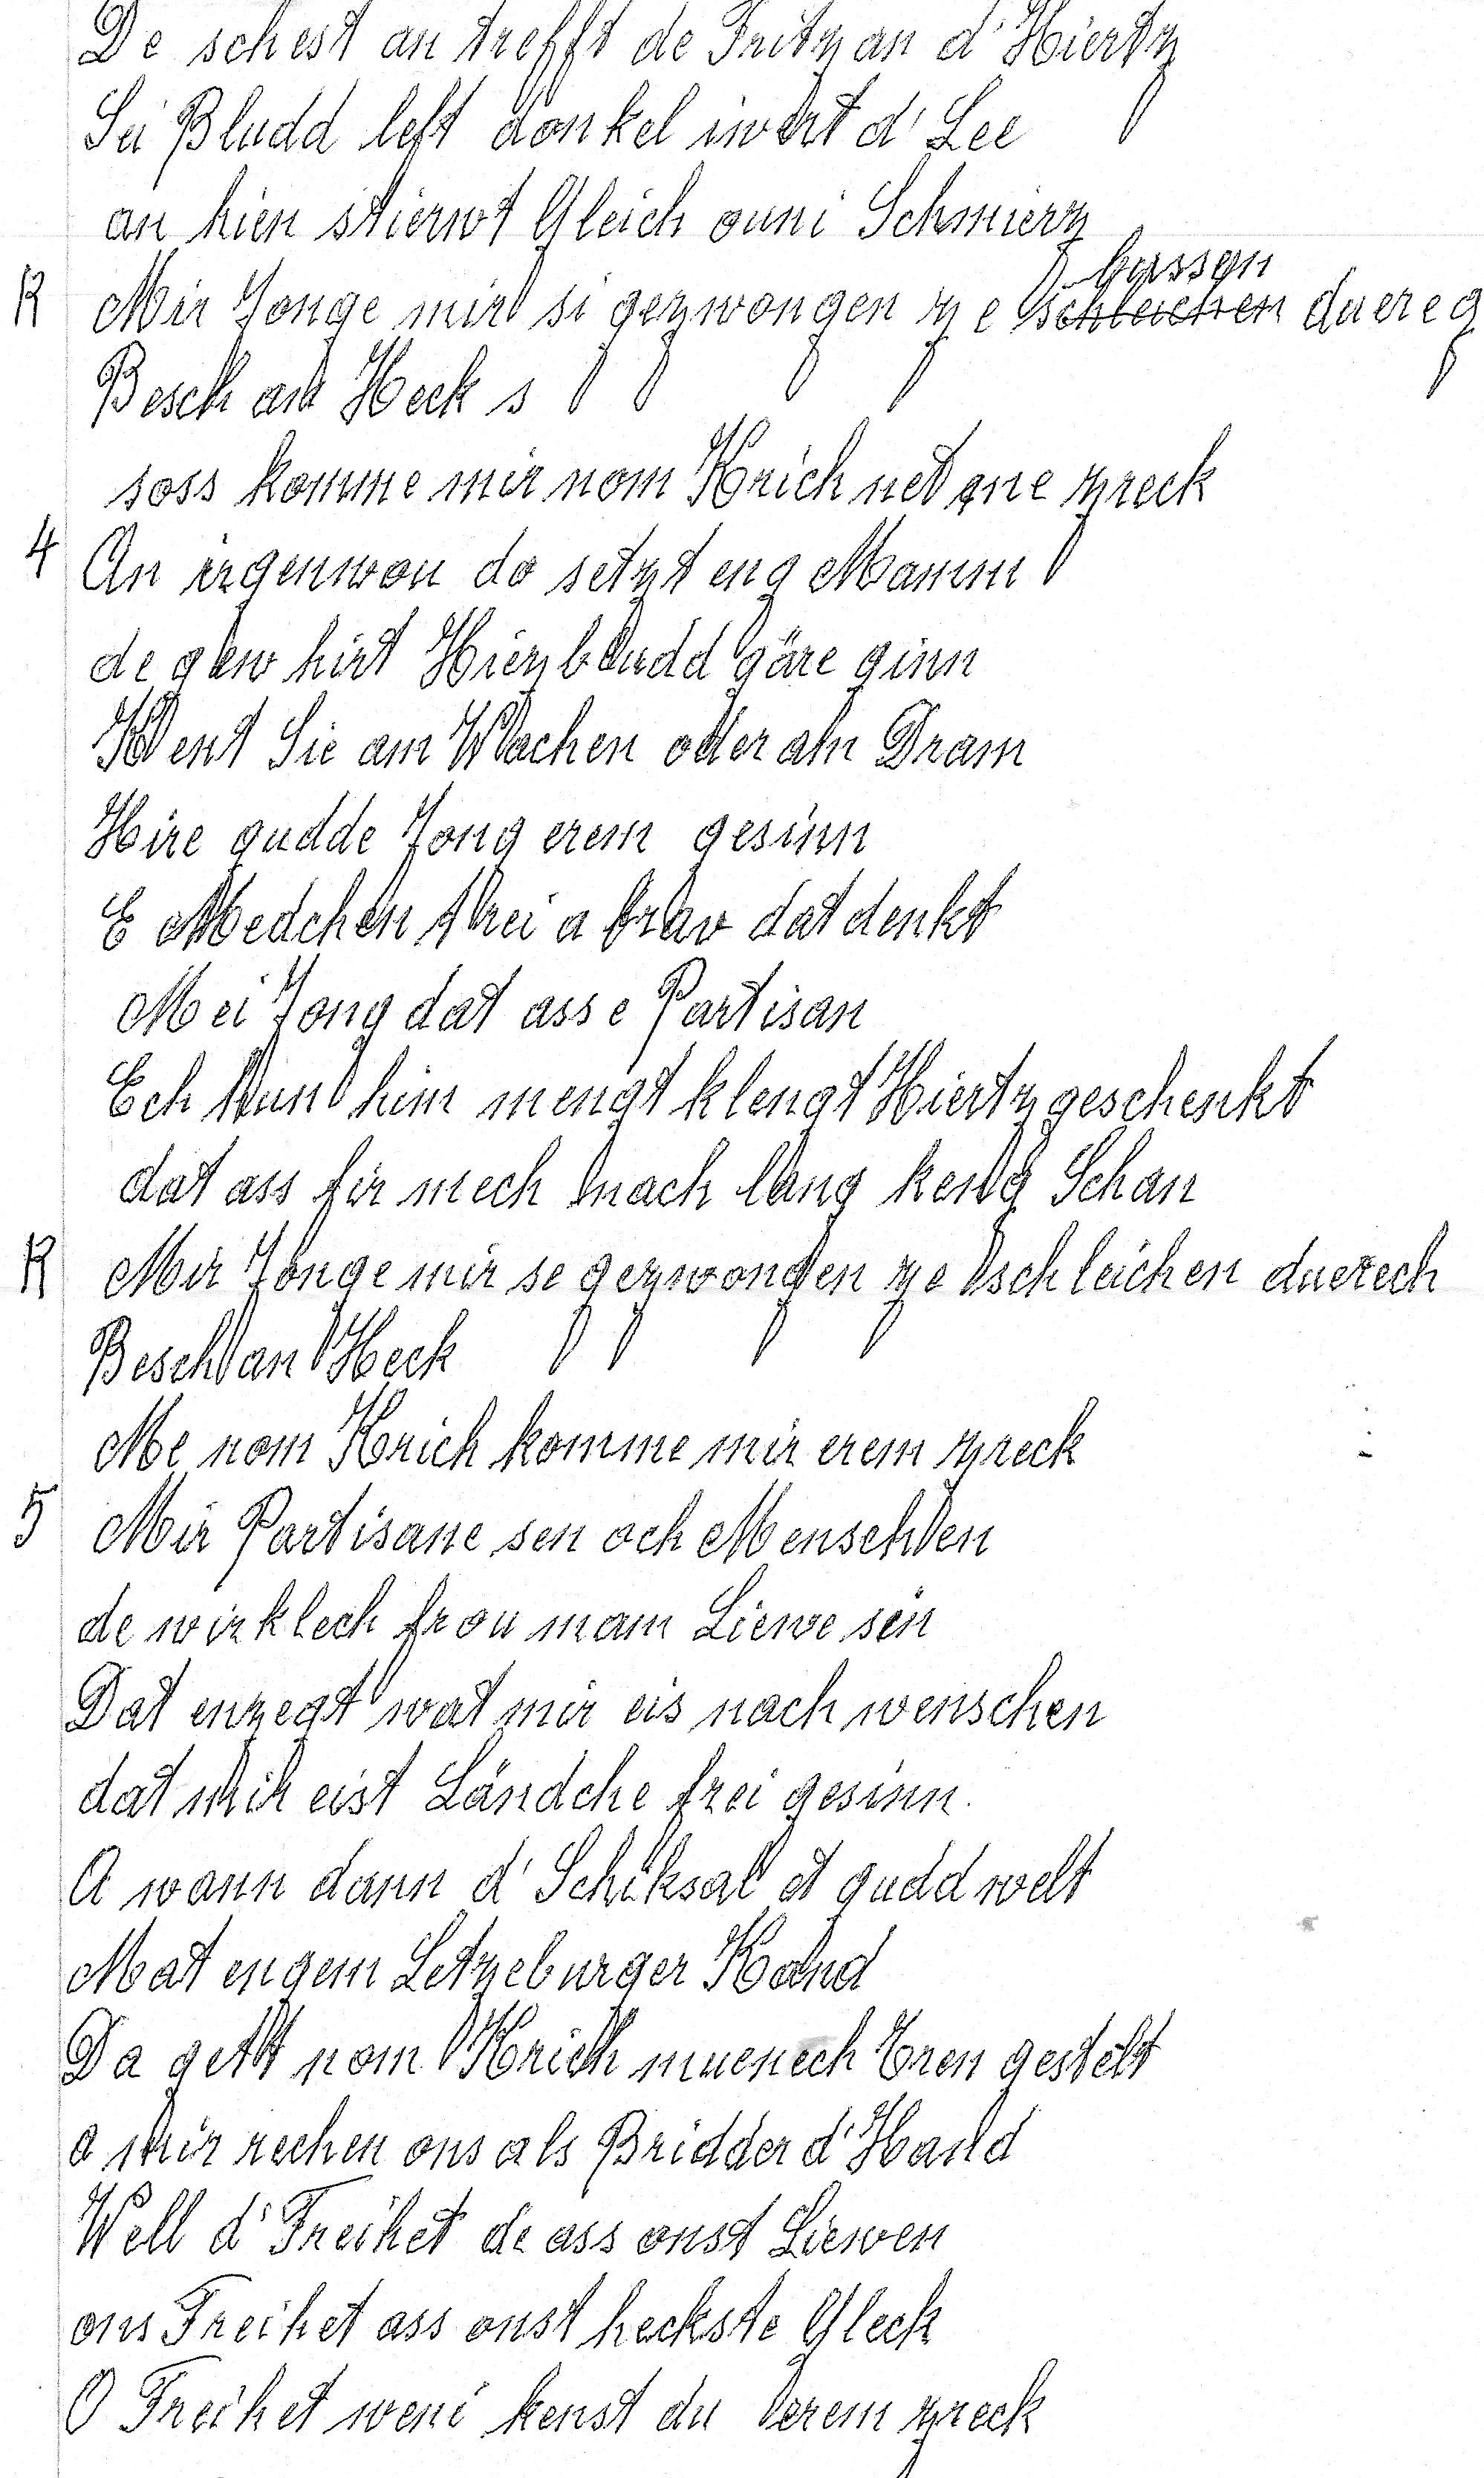 De schest an trefft de Fritz an d'Hiertz
Sei Bludd left donkel iwert d'Lee
an hien stierwt Gleich ouni Schmierz
bassen
R Mir Jonge mir si gezwongen ze schleichen duereg
Besch an Heck s
soss komme mir vom Krich net me zreck
4 An irgenwou do setzt eng Mamm
de gew hirt Hierzbludd gäre ginn
Kent Sie am Wachen oder am Dram
Hire gudde Jong erem gesinn
E Medchen trei a brav dat denkt
Mei Jong dat ass e Partisan
Ech hun him mengt klengt Hiertz geschenkt
dat ass fir mech nach lang keng Schan
R Mir Jonge mir se gezwongen ze schleichen duerech
Besch an Heck
Me vom Krich komme mir erem zreck
5 Mir Partisane sen och Menschen
de wirklech frou mam Liewe sen
Dat enzegt wat mir eis nach wenschen
dat mir eist Ländche frei gesinn.
A wann dann d'Schiksal et gudd welt
Mat engem Letzeburger Kand
Da gett vom Krich muenech Tren gestelt
a mir rechen ons als Bridder d'Hand
Well d'Freihet de ass onst Liewen
ons Freihet ass onst heckste Gleck
O Freihet weni kenst du erem zreck